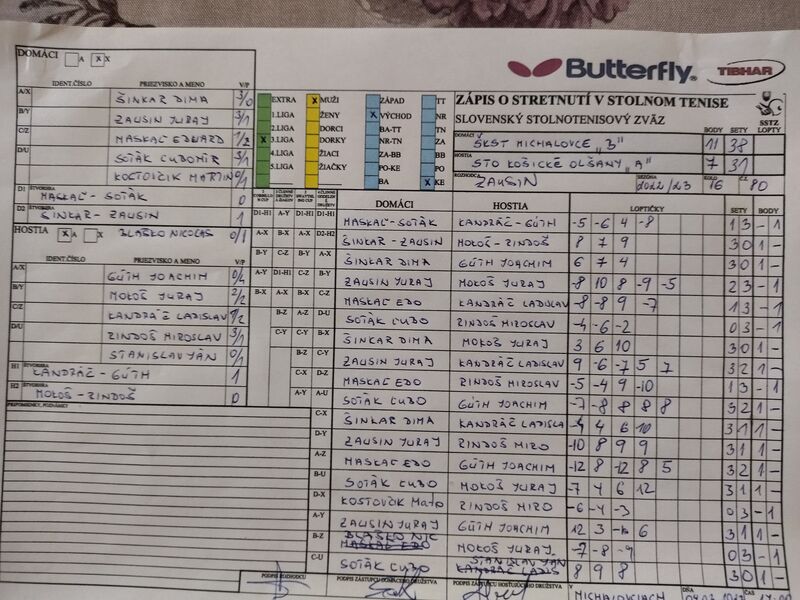 DOMÁCI A X X
Butterfly® TIBHAR
IDENT.ČÍSLO PRIEZVISKO A MENO V/P
A/X ŠINKAR DIMA 3/0
B/Y ZAUSIN JURAJ 3/1
C/Z MASKAĽ EDWARD 1/2
D/U SOTÁK ĽUBOMÍR 3/1
KOSTOVČIK MARTIN 0/1
D1 ŠTVORHRA MASKAĽ - SOTÁK 0
D2 ŠTVORHRA ŠINKAR - ZAUSIN 1
HOSTIA X A X BLAŠKO NICOLAS 0/1
IDENT.ČÍSLO PRIEZVISKO A MENO V/P
A/X GÚTH JOACHIM
B/Y MOKOŠ JURAJ 2/2
C/Z KANDRÁČ LADISLAV
D/U ZINDOŠ MIROSLAV 3/1
STANISLAV JÁN 0/1
H1 ŠTVORHRA KANDRÁČ - GÚTH 1
H2 ŠTVORHRA MOKOŠ - ZINDOŠ 0
PRIPOMIENKY, POZNÁMKY
EXTRA X MUŽI ZÁPAD TT
1.LIGA ŽENY X VÝCHOD NR
2.LIGA DORCI BA-TT TN
X 3.LIGA DORKY NR-TN ZA
4.LIGA ŽIACI ZA-BB BB
5.LIGA ŽIAČKY PO-KE PO
BA X KE
ZÁPIS O STRETNUTÍ V STOLNOM TENISE
SLOVENSKÝ STOLNOTENISOVÝ ZVÄZ
SSTZ
BODY SETY LOPTY
DOMÁCI ŠKST MICHALOVCE "B" 11 38
HOSTIA STO KOŠICKÉ OLŠANY "A" 7 31
ROZHODCA ZAUSIN SEZÓNA 2022/23 KOLO 16 Č.Z. 80
DOMÁCI HOSTIA LOPTIČKY SETY BODY
D1-H1 A-Y D1-H1 D1-H1 MASKAĽ - SOTÁK KANDRÁČ - GÚTH -5 -6 4 -8 1 3 - 1
A-X B-X A-X D2-H2 ŠINKAR - ZAUSIN MOKOŠ - ZINDOŠ 8 7 9 3 0 1 -
ŠINKAR DIMA GÚTH JOACHIM 6 7 4 3 0 1 -
ZAUSIN JURAJ MOKOŠ JURAJ -8 10 8 -9 -5 2 3 - 1
MASKAĽ EDO KANDRÁČ LADISLAV -8 -8 9 -7 1 3 - 1
SOTÁK ĽUBO ZINDOŠ MIROSLAV -4 -6 -2 0 3 - 1
ŠINKAR DIMA MOKOŠ JURAJ 3 6 10 3 0 1 -
ZAUSIN JURAJ KANDRÁČ LADISLAV 9 -6 -7 5 7 3 2 1 -
MASKAĽ EDO ZINDOŠ MIROSLAV -5 -4 9 -10 1 3 - 1
SOTÁK ĽUBO GÚTH JOACHIM -7 -8 8 8 8 3 2 1 -
C-X ŠINKAR DIMA KANDRÁČ LADISLA 4 6 10 3 1 1 -
D-Y ZAUSIN JURAJ ZINDOŠ MIRO -10 8 9 9 3 1 1 -
A-Z MASKAĽ EDO GÚTH JOACHIM -12 8 -12 8 5 3 2 1 -
B-U SOTÁK ĽUBO MOKOŠ JURAJ -7 4 6 12 3 1 1 -
D-X KOSTOVČIK Mato ZINDOŠ MIRO -6 -4 -3 0 3 - 1
A-Y ZAUSIN JURAJ GÚTH JOACHIM 12 3 6 3 1 1 -
B-Z BLAŠKO NIC MASKAĽ EDO MOKOŠ JURAJ -7 -8 -9 0 3 - 1
C-U SOTÁK ĽUBO STANISLAV JÁN KANDRÁČ LADIS 8 9 8 3 0 1 -
PODPIS ROZHODCU PODPIS ZÁSTUPCU DOMÁCEHO DRUŽSTVA PODPIS ZÁSTUPCU HOSŤUJÚCEHO DRUŽSTVA V MICHALOVCIACH DŇA ČAS